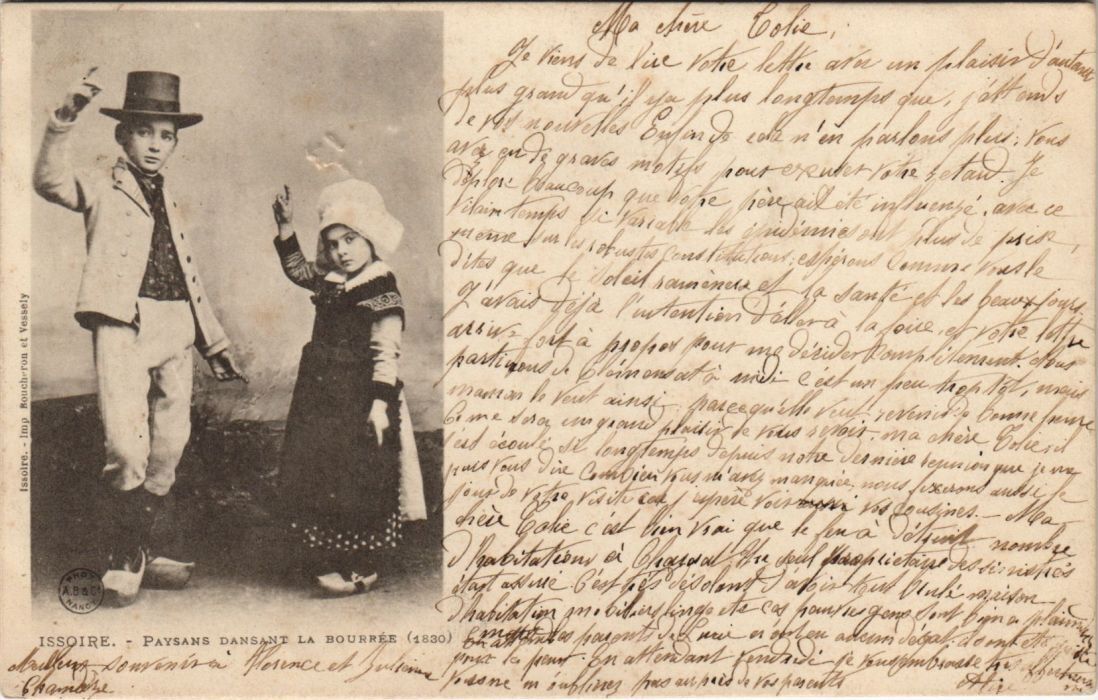 Ma chère Tolie,
Je viens de lire votre lettre avec un plaisir d'autant
plus grand qu'il y a plus longtemps que j'attends
de vos nouvelles Enfin de cela n'en parlons plus; vous
avez eu de graves motifs pour excuser votre retard. Je
déplore beaucoup que votre père ait été influenzé. avec ce
vilain temps si variable les épidémies ont plus de prise,
même sur les robustes constitutions; espérons comme vous le
dites que le soleil ramènera et la santé et les beaux jours
J'avais déjà l'intention d'aller à la foire, et votre lettre
arrive fort à propos pour me décider complètement. Nous
partirons de à midi c'est un peu trop tôt, mais
maman le veut ainsi parce qu'elle veut revenir de bonne heure
Ce me sera un grand plaisir de vous revoir. ma chère Tolie, il
s'est écoulé si longtemps depuis notre dernière réunion que je ne
puis vous dire combien vous m'avez manquée, nous fixerons aussi le
jour de votre visite car j'espère voir vos cousines. - Ma
chère Tolie c'est bien vrai que le feu a détruit nombre
d'habitations à seul propriétaire des sinistrés
était assuré C'est très désolant d'avoir tout brûlé maison
d'habitation mobilier linge etc ces pauvres gens sont bien à plaindre
les parents de Lucie n'ont eu aucun dégât
pour la peur. En attendant vendredi je vous embrasse
ne m'oubliez pas auprès de vos parents
Issoire. - Imp. Boucheron et Vessely
PHOT
A.B & Cie
NANCY
ISSOIRE. - PAYSANS DANSANT LA BOURRÉE (1830)
Meilleur souvenir à Florence et